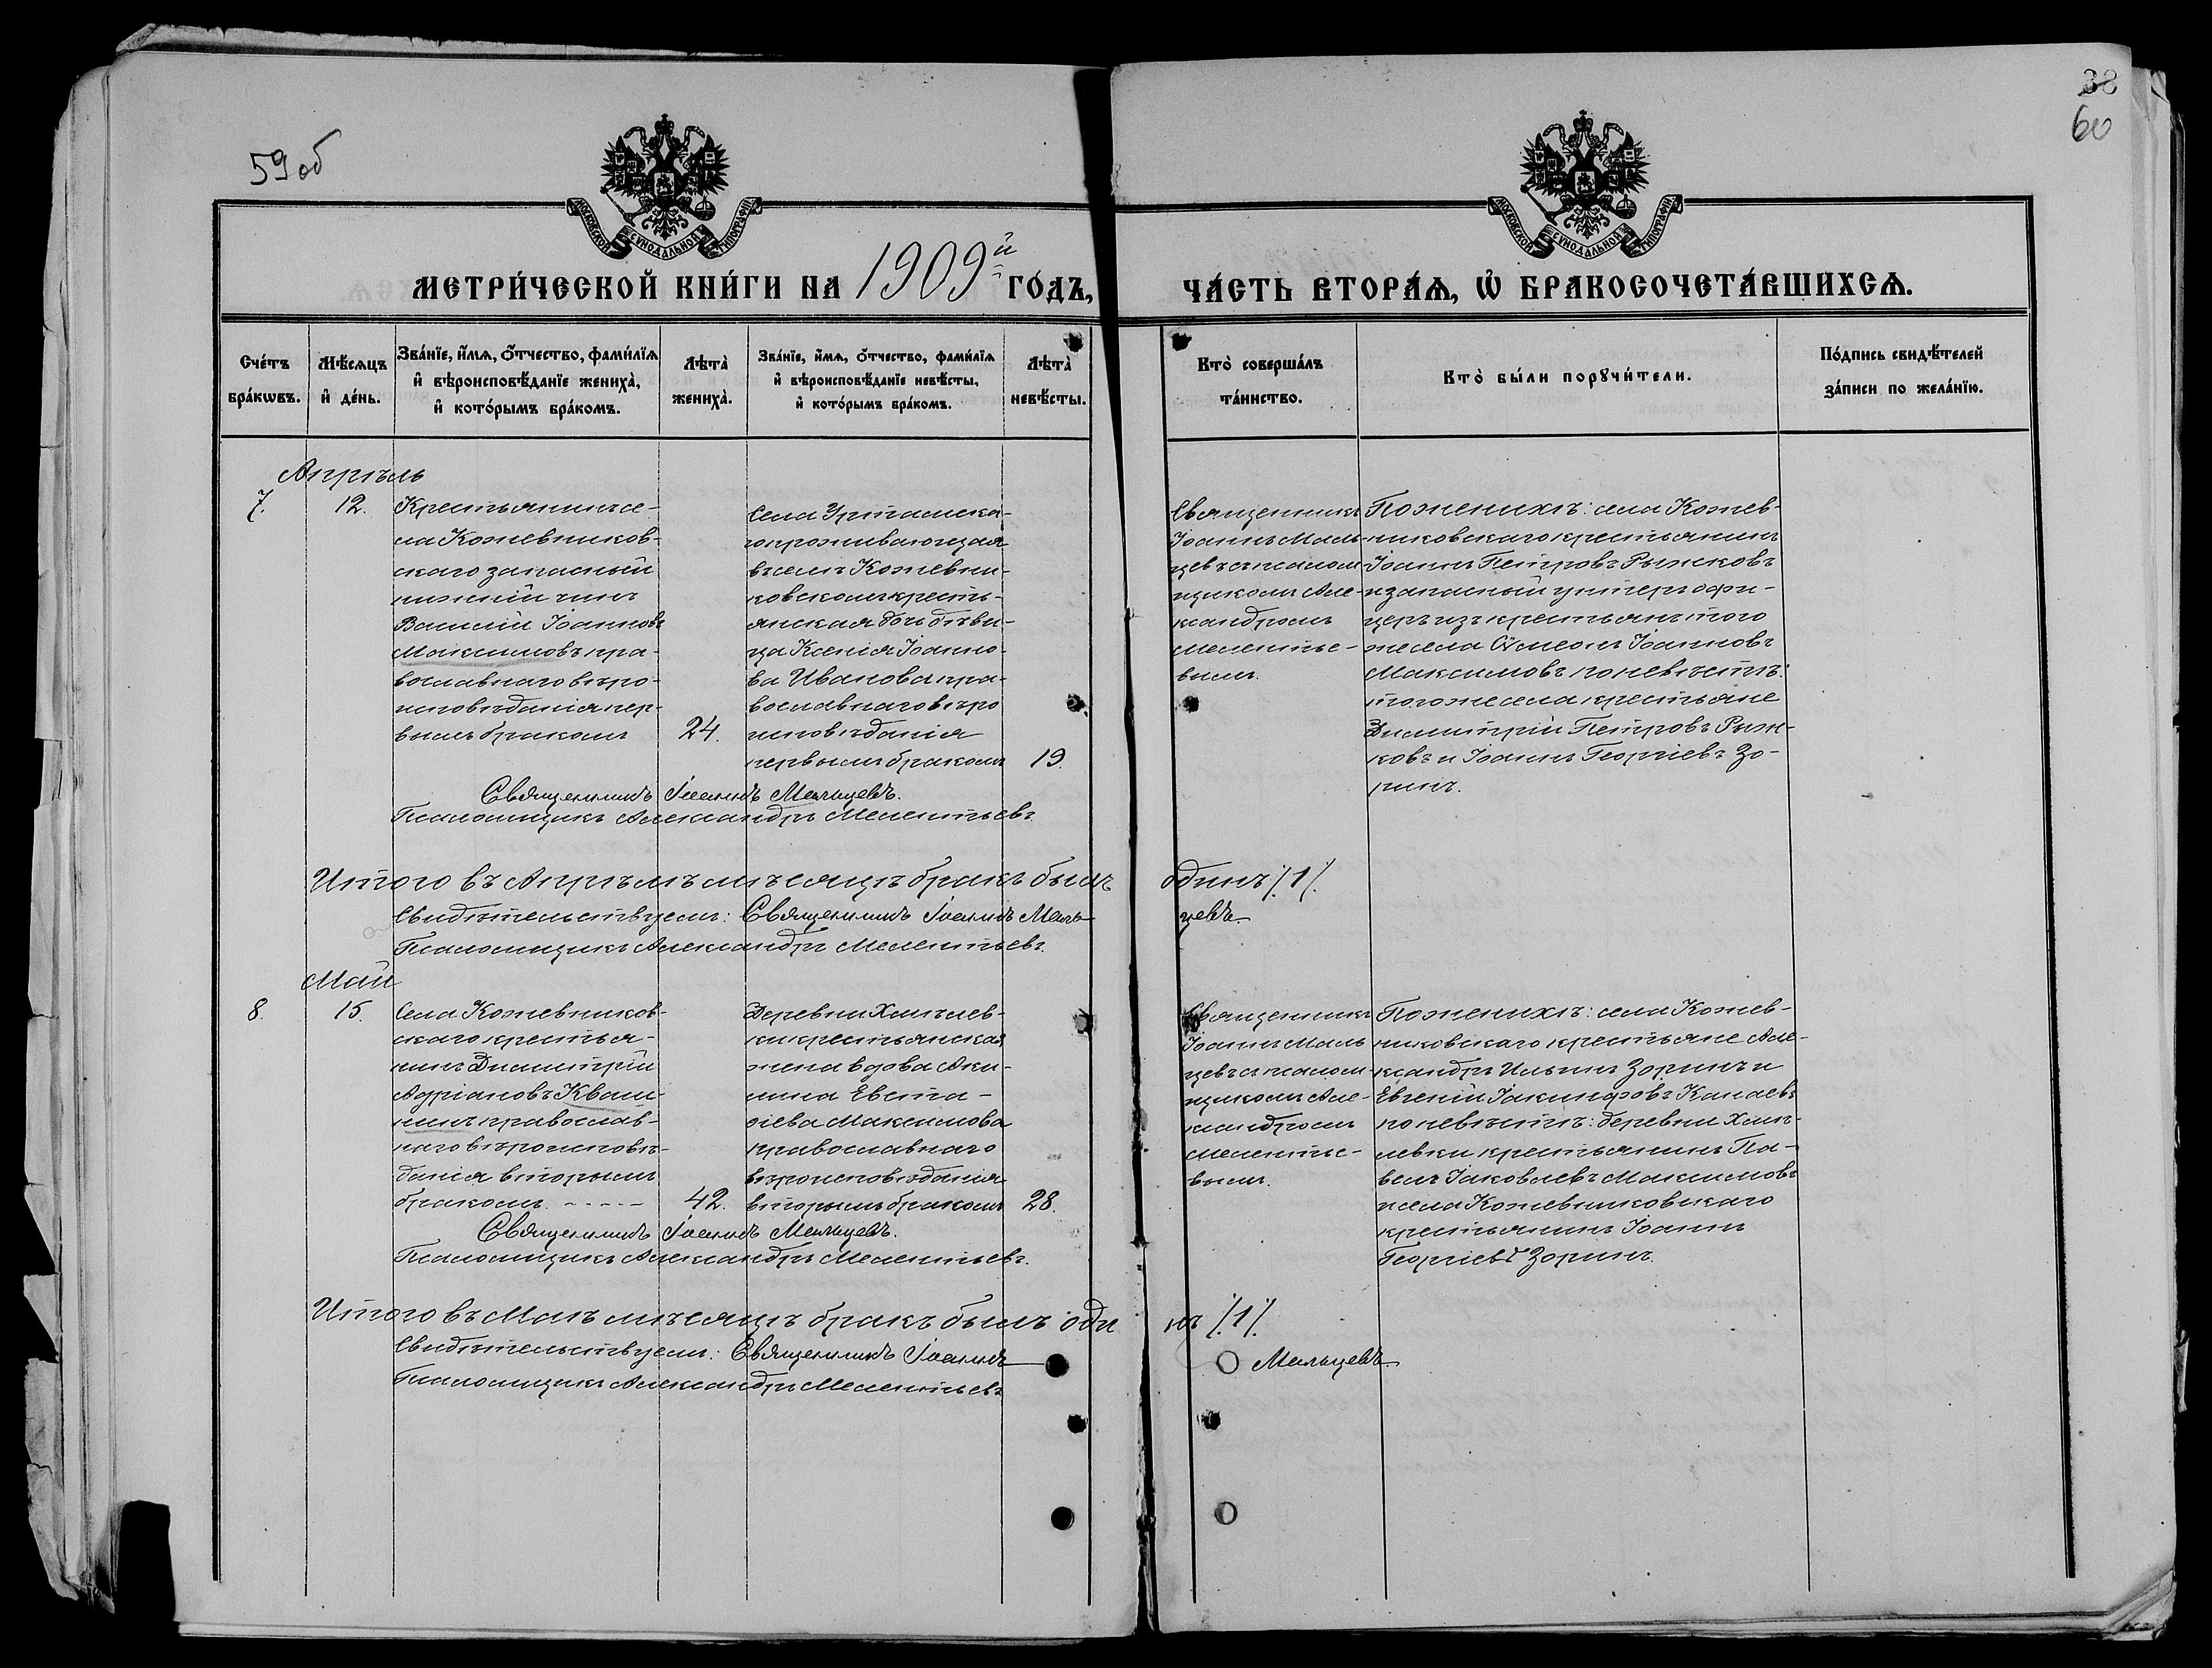 59 об
38
60
МОСКОВСКОЙ СУНОДАЛЬНОЙ ТИПОГРАФІИ
МОСКОВСКОЙ СУНОДАЛЬНОЙ ТИПОГРАФІИ
МЕТРИ́ЧЕСКОЙ КНИ́ГИ НА 1909й ГО́ДЪ,
ЧА́СТЬ ВТОРА́Ѧ, Ѡ҆ БРАКОСОЧЕТА́ВШИХСѦ.
Сче́тъ
бра́кѡвъ.
Мѣ́сѧцъ
и҆ де́нь.
Зва́нїе, и҆́мѧ, ѻ҆́тчество, фами́лїѧ
и҆ вѣроисповѣ́данїе жениха̀,
и҆ кото́рымъ бра́комъ.
Лѣта̀
жениха̀.
Зва́нїе, и҆́мѧ, ѻ҆́тчество, фами́лїѧ
и҆ вѣроисповѣ́данїе невѣ́сты,
и҆ кото́рымъ бра́комъ.
Лѣта̀
невѣ́сты.
Кто̀ соверша́лъ
та́инство.
Кто̀ бы́ли порꙋчи́тели.
По́дпись свидѣ́телей
за́писи по жела́нїю.
Апрѣль
7.
12.
Крестьянинъ се-
ла Кожевников-
скаго запасный
нижній чинъ
Василій Іоанновъ
Максимовъ пра-
вославнаго вѣро-
исповѣданія пер-
вымъ бракомъ
24.
Села Уртамска-
го проживающая
въ селѣ Кожевни-
ковскомъ кресть-
янская дочь дѣви-
ца Ксенія Іоанно-
ва Иванова пра-
вославнаго вѣро
исповѣданія
первымъ бракомъ
19.
Священникъ
Іоаннъ Маль-
цевъ съ псалом
щикомъ Але-
ксандромъ
Мелентье-
вымъ.
По женихѣ: села Кожев-
никовскаго крестьянинъ
Іоаннъ Петровъ Рыжковъ
и запасный унтеръ офи-
церъ изъ крестьянъ того
же села Сѵмеонъ Іоанновъ
Максимовъ по невѣстѣ:
того же села крестьяне
Димитрій Петровъ Рыж-
ковъ и Іоаннъ Георгіевъ Зо-
ринъ.
Священникъ Іоаннъ Мальцевъ.
Псаломщикъ Александръ Мелентьевъ
Итого въ Апрѣлѣ мѣсяцѣ бракъ былъ одинъ /1/.
Свидѣтельствуемъ: Священникъ Іоаннъ Маль-
цевъ.
Псаломщикъ Александръ Мелентьевъ.
Май
8.
15.
Села Кожевников-
скаго крестья-
нинъ Димитрій
Адріановъ Кваш-
нинъ православ-
наго вѣроисповѣ-
данія вторымъ
бракомъ. - - - - -
42.
Деревни Хмѣлев-
ки крестьянская
жена вдова Аки-
лина Евста-
фіева Максимова
православнаго
вѣроисповѣданія
вторымъ бракомъ
28.
Священникъ
Іоаннъ Маль
цевъ съ псалом-
щикомъ Але-
ксандромъ
Мелентье-
вымъ.
По женихѣ: села Кожев-
никовскаго крестьяне Але-
ксандръ Ильинъ Зоринъ и
Евгеній Іакинфовъ Канаевъ
по невѣстѣ: деревни Хмѣ-
левки крестьянинъ Па-
велъ Іаковлевъ Максимовъ
и села Кожевниковскаго
крестьянинъ Іоаннъ
Георгіевъ Зоринъ.
Священникъ Іоаннъ Мальцевъ.
Псаломщикъ Александръ Мелентьевъ.
Итого въ Маѣ мѣсяцѣ бракъ былъ оди нъ /1/.
Свидѣтельствуемъ: Священникъ Іоаннъ Мальцевъ.
Псаломщикъ Александръ Мелентьевъ